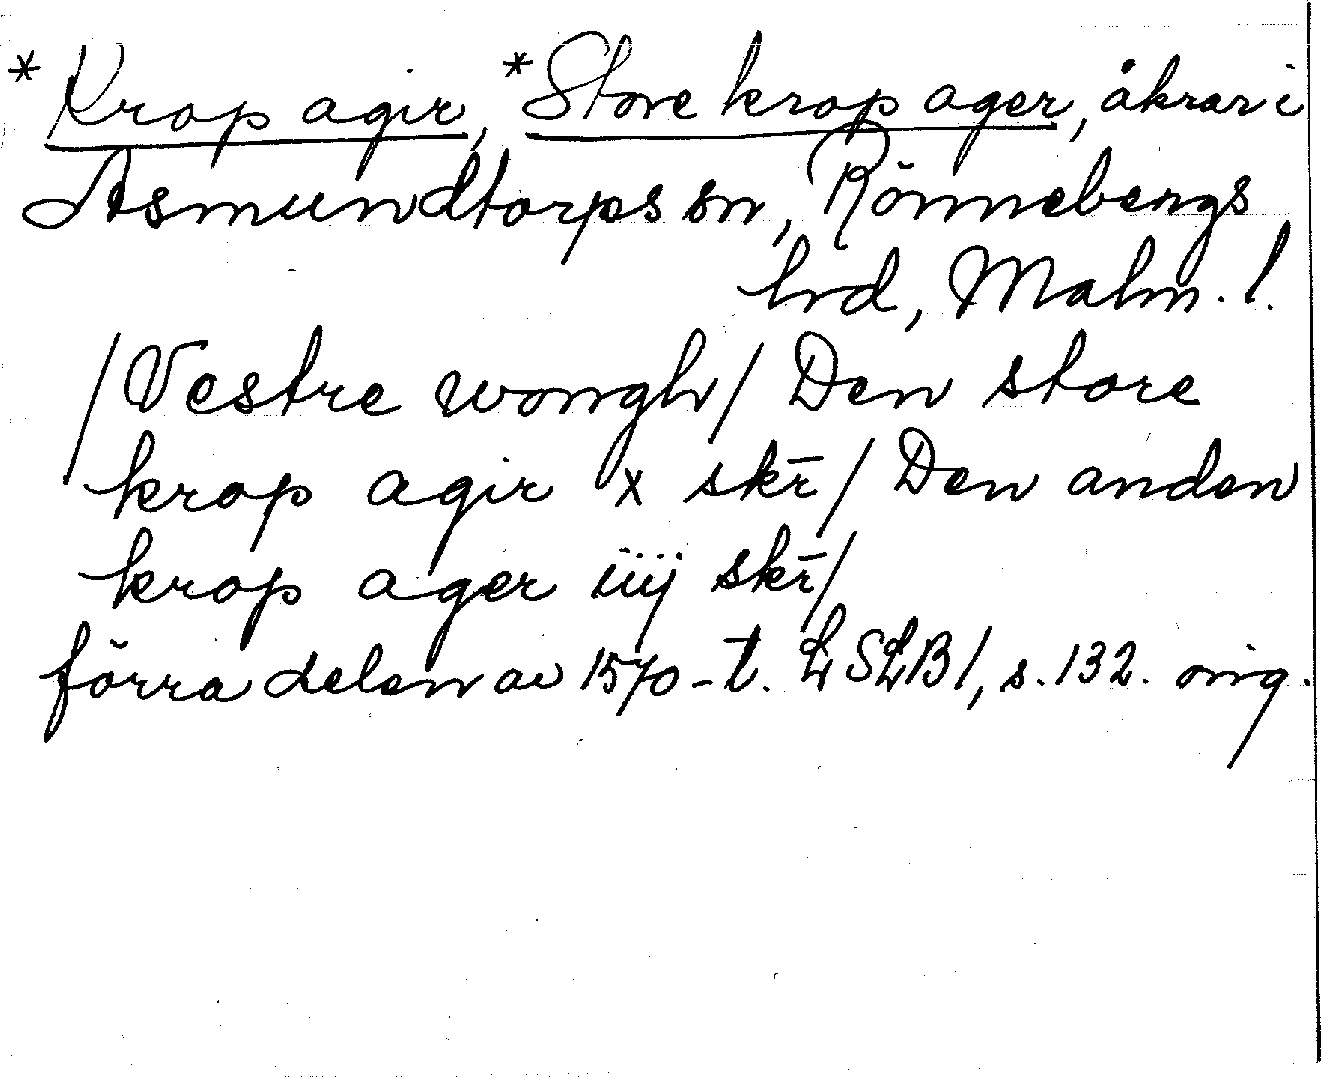 *Krop agir, *Store krop ager, åkrar i
Asmundtorps sn, Rönnebergs
hrd, Malm. l.
/Vestre wongh/ Den store
krop agir x skr̄/ Den anden
krop ager iiij skr̄/
förra delen av 1570-t. LSLB1, s. 132. orig.